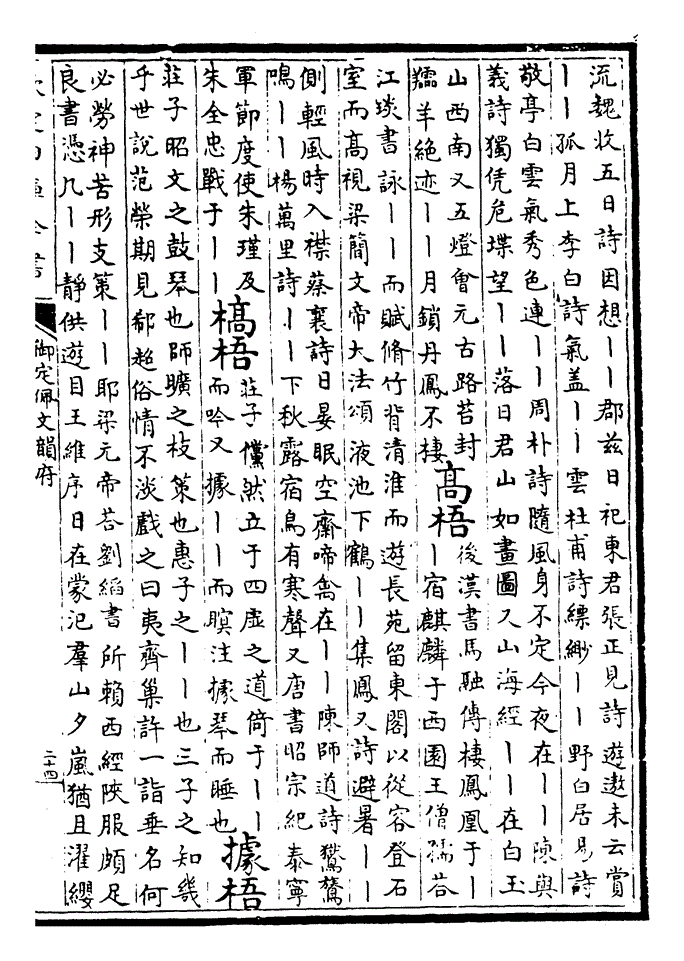 流魏收五日詩因想丨丨郡兹日祀東君張正見詩遊遨未云賞
丨丨孤月上李白詩氣盖丨丨雲杜甫詩縹緲丨丨野白居易詩
敬亭白雲氣秀色連丨丨周朴詩隨風身不定今夜在丨丨陳與
義詩獨凭危堞望丨丨落日君山如畫圖又山海經丨丨在白玉
山西南又五燈會元古路苔封
羺羊絶迹丨丨月鎖丹鳳不棲
高梧
後漢書馬融傳棲鳳凰于
丨宿麒麟于西園王僧孺荅
江琰書詠丨丨而賦脩竹背清淮而遊長苑留東閣以從容登石
室而高視梁簡文帝大法頌液池下鶴丨丨集鳳又詩避暑丨丨
側輕風時入襟蔡襄詩日晏眠空齋啼禽在丨丨陳師道詩驚鶩
鳴丨丨楊萬里詩丨丨下秋露宿鳥有寒聲又唐書昭宗紀泰寧
軍節度使朱瑾及
朱全忠戰于丨丨
槁梧
莊子儻然立于四虛之道倚于丨丨
而吟又據丨丨而瞑注據琴而睡也
據梧
莊子昭文之鼓琴也師曠之枝策也惠子之丨丨也三子之知幾
乎世說范榮期見郗超俗情不淡戲之曰夷齊巢許一詣垂名何
必勞神苦形支策丨丨耶梁元帝荅劉縚書所賴西經陜服頗足
良書憑几丨丨靜供遊目王維序日在蒙汜羣山夕嵐猶且濯纓
欽定四庫全書
御定佩文韻府
二十四